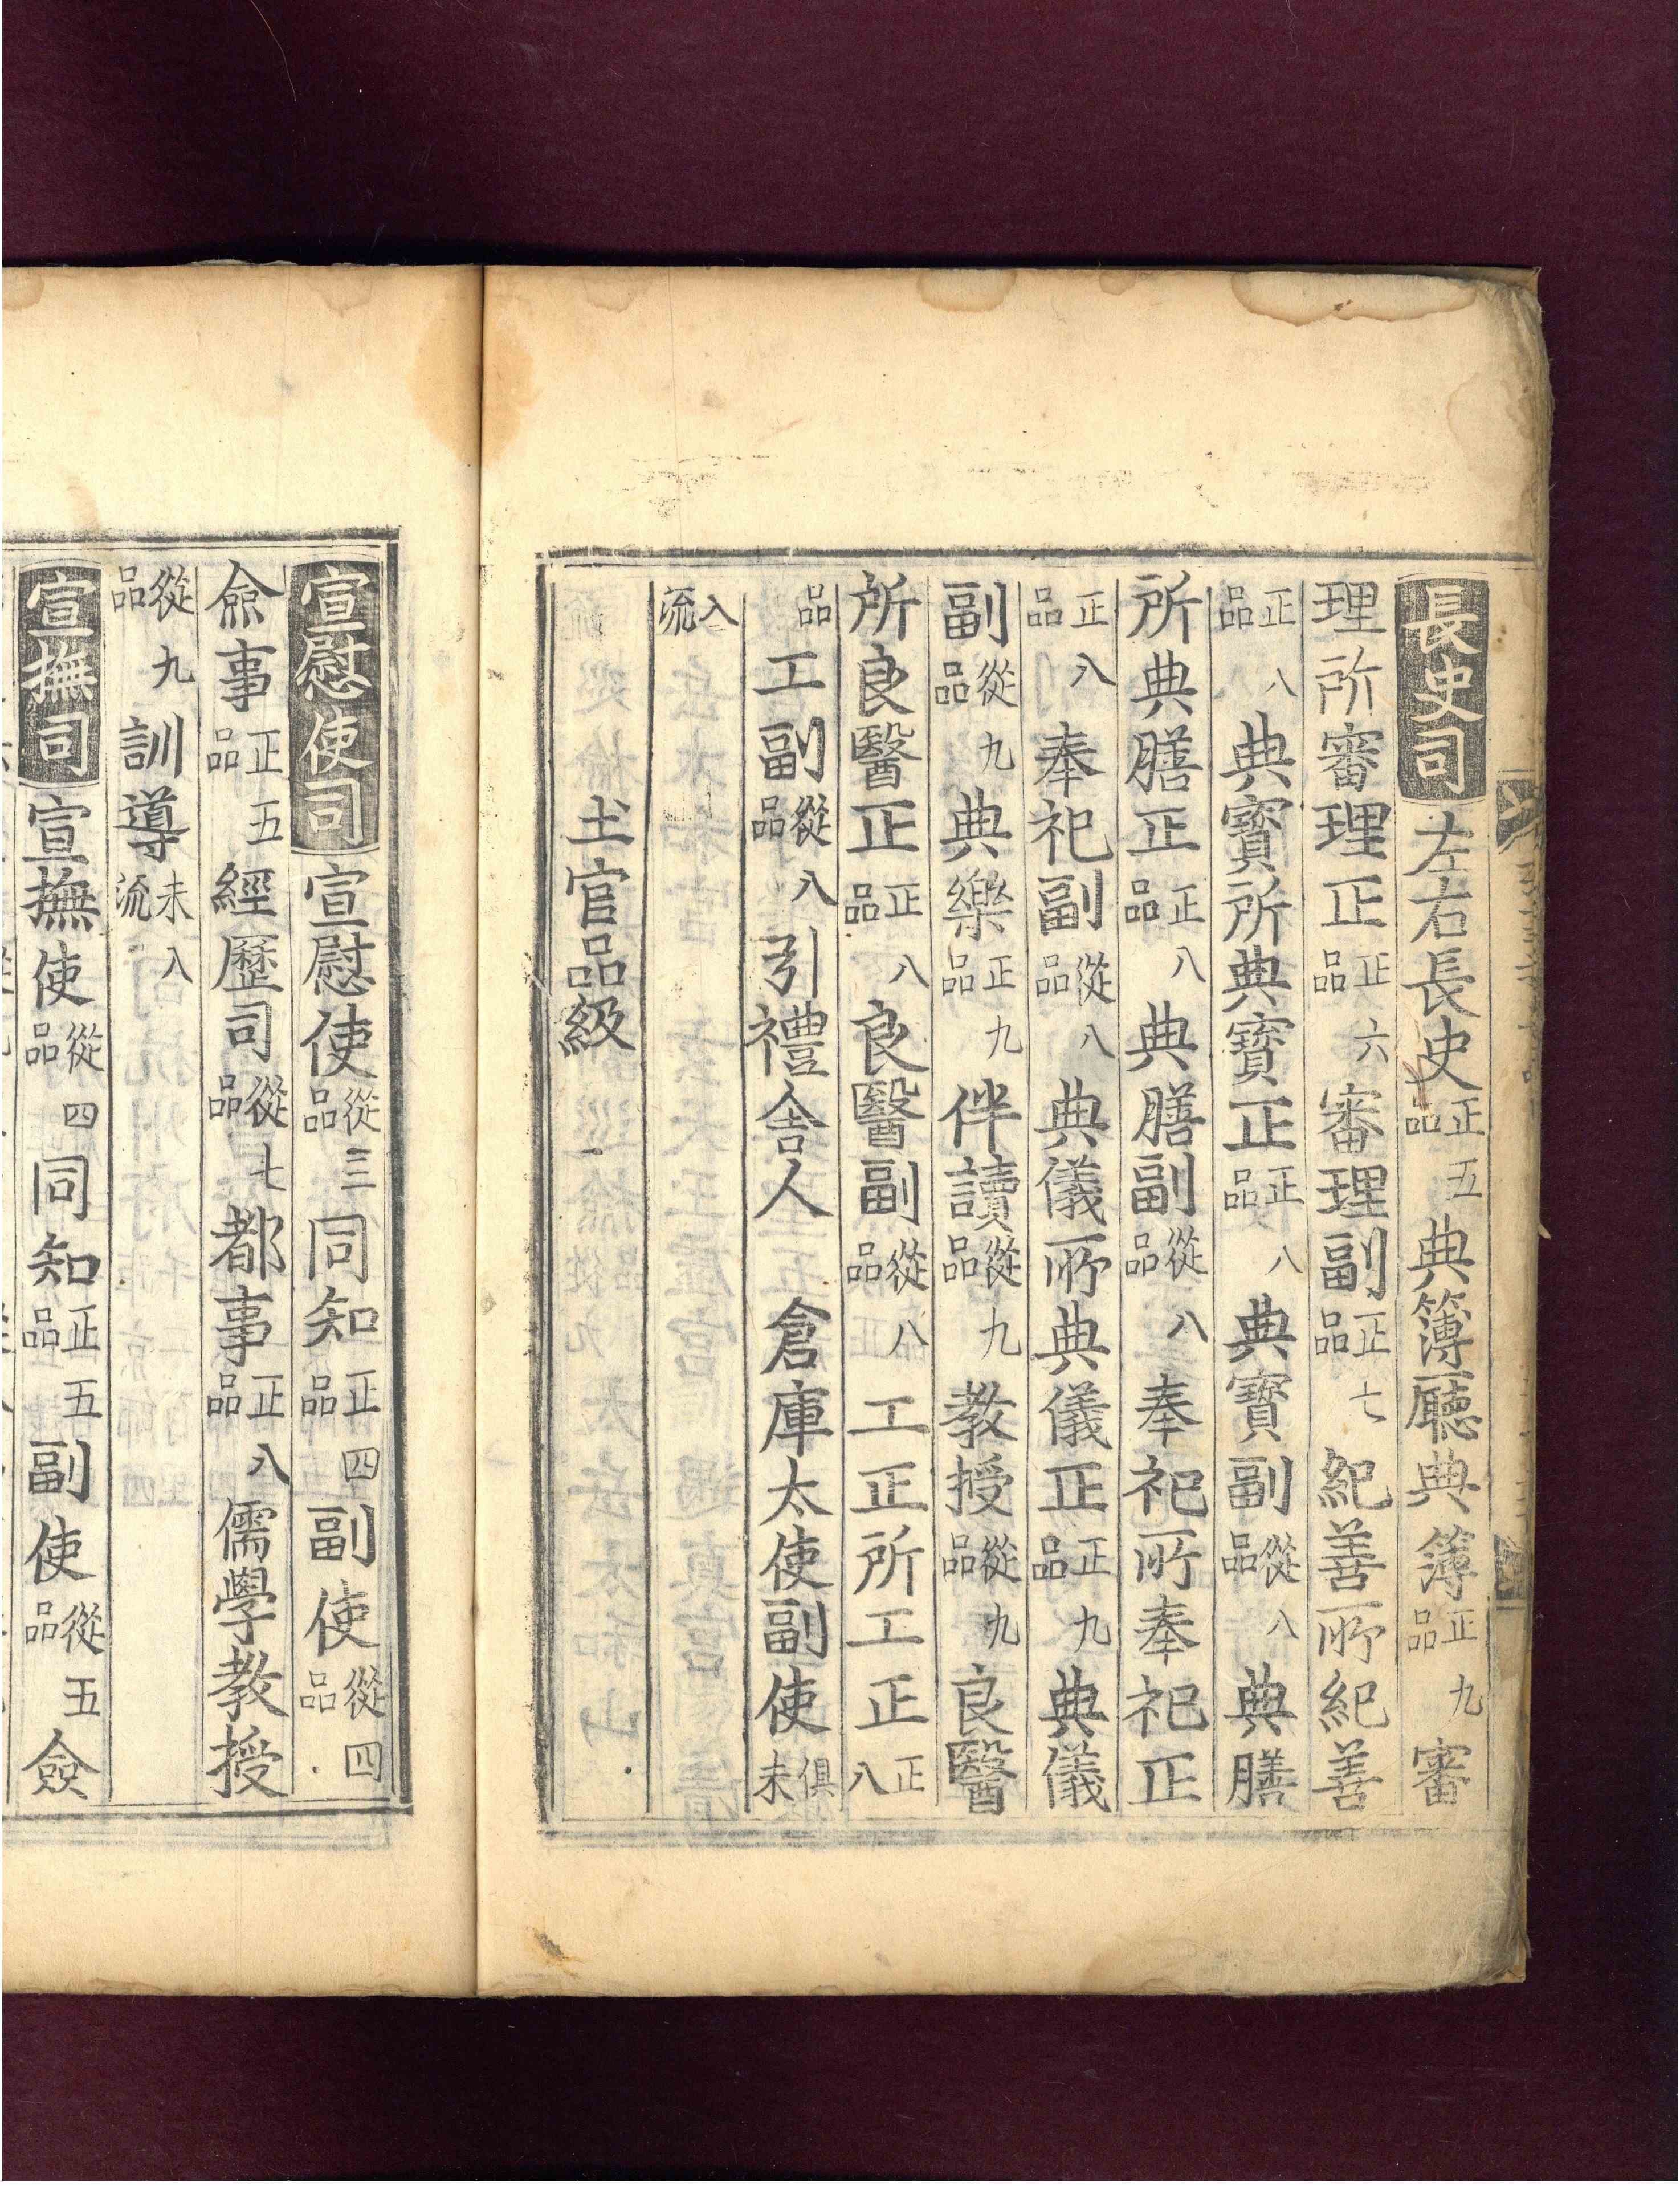 長史司左右長史正五品典簿廳典簿正九品審
理所審理正正六品審理副正七品紀善所紀善
正八品典寶所典寶正正八品典寶副從八品典膳
所典膳正正八品典膳副從八品奉祀所奉祀正
正八品奉祀副從八品典儀所典儀正正九品典儀
副從九品典樂正九品伴讀從九品教授從九品良醫
所良醫正正八品良醫副從八品工正所工正正八
品工副從八品引禮舍人 倉庫太使副使俱未
入流
土官品級
宣慰使司宣慰使從三品同知正四品副使從四品
僉事正五品經歷司從七品都事正八品儒學教授
從九品訓導未入流
宣撫司宣撫使從四品同知正五品副使從五品僉